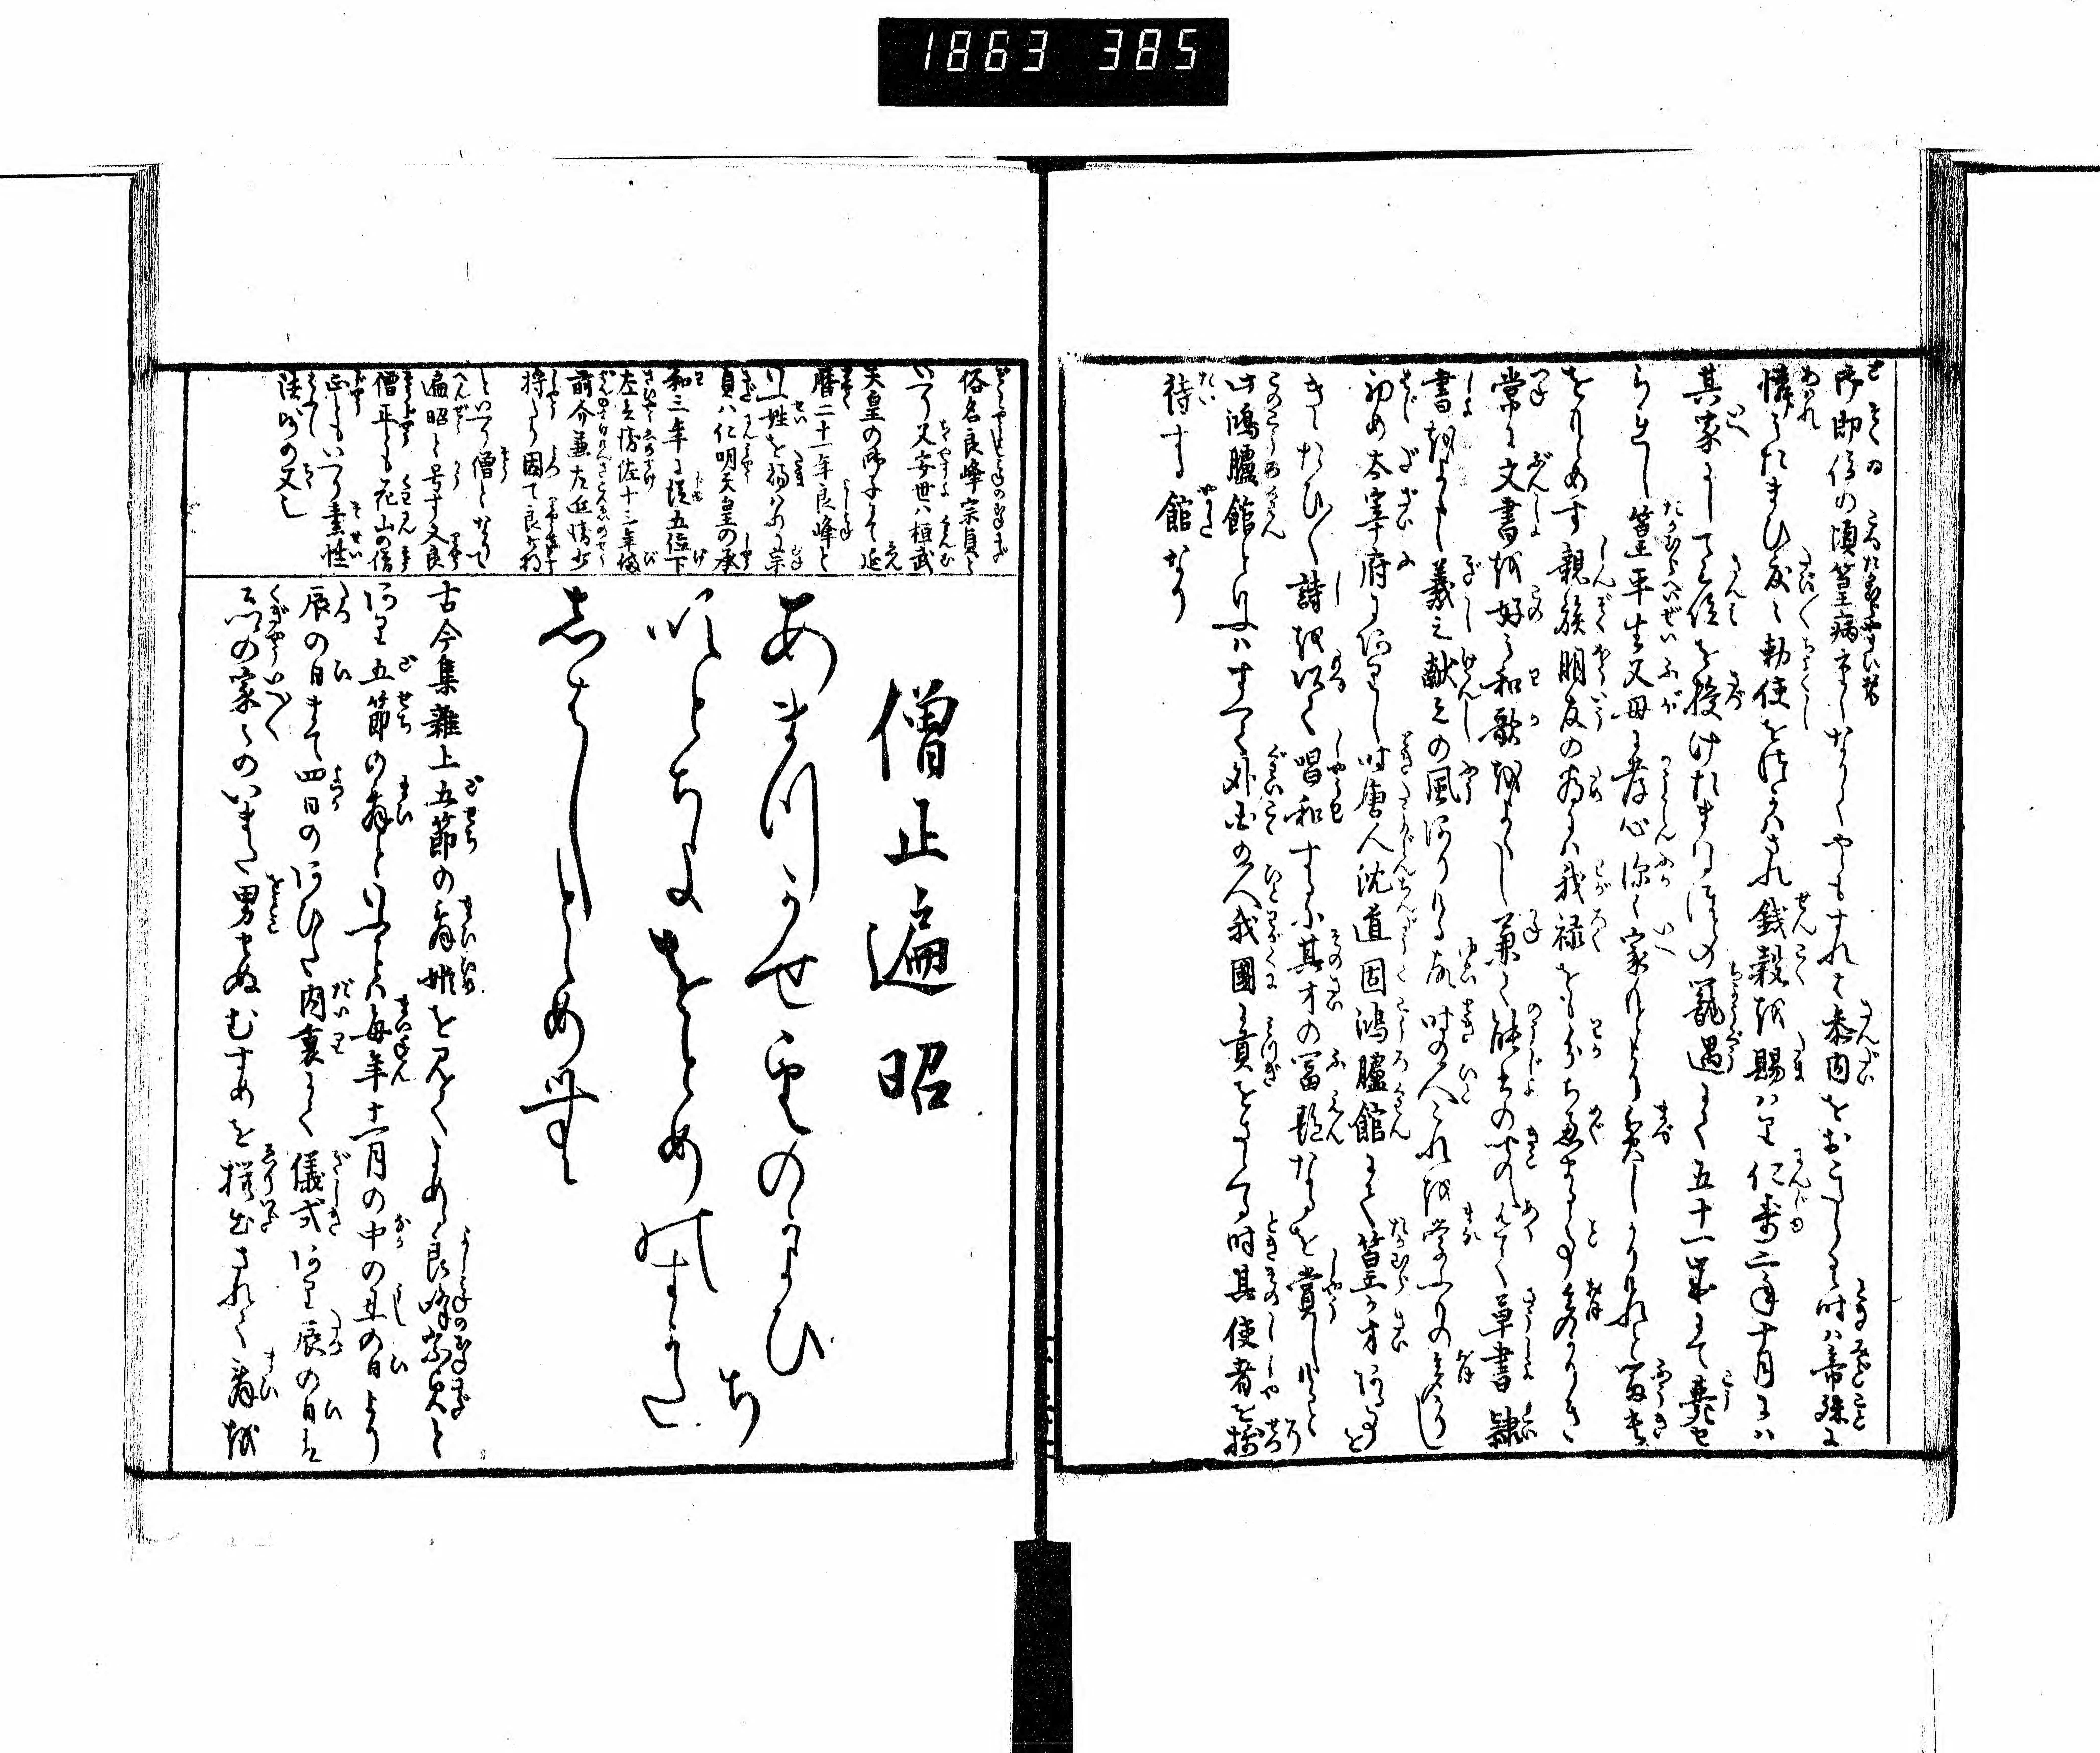 1863 385
御即位の頃篁病重くなりてやもすれは参内をおこたりし時は帝殊に
憐みたまひ度々勅使をつかはされ銭穀を賜はり仁寿二年十月には
其家にして三位を授けたまはる
寵遇にて五十一歳にて薨せ
られし篁平生父母に孝心深く家もとより貧しかりけれと
をもとめす親族朋友の為には我禄をもわかち
常に文書を好み和歌をよくし兼て能書の
草書隷
書をよくし羲之献之の風ありける故時の人これを学ふもの多かりし
初め太宰府にありし時唐人沈道固鴻臚館にて篁か才あることを
きゝたひ〳〵詩を以て唱和するに其才の冨艶なるを賞しけると
此鴻臚館といふはすへて外国の人我國に貢をさゝくる時其使者を接
待する館なり
俗名良峰宗貞と
いふ父安世は桓武
天皇の御子にて延
暦二十一年良峰と
いふ姓を賜はる宗
貞は仁明天皇の承
和三年に従五位下
左兵衛佐十三年備
前介兼左近衛少
将たり因て良少将
といふ僧となりて
遍昭と号す又良
僧正とも花山の僧
正ともいふ素性
法師の父也
僧正遍昭
あまつかせ雲のかよひち
ふきとちよをとめのすかた
しはしとゝめむ
古今集雑上五節の舞姫を見てよめる良峰宗貞と
あり五節の舞といふは毎年十一月の中の丑の日より
辰の日まて四日のあひた内裏にて儀式あり辰の日は
公卿の家々のいまた男せぬむすめを撰出されて舞を